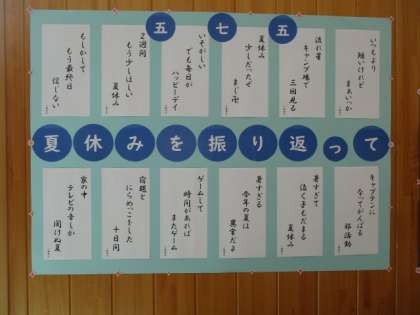 五七五
いつもより
短いけれど
まあいっか
流れ星
キャンプ場で
三回見る
夏休み
少しだったぜ
まじ卍
いそがしい
でも毎日が
ハッピーデイ
2週間
もう少しほしい
夏休み
もしかして
もう最終日
信じない
夏休みを振り返って
キャプテンに
なってがんばる
部活動
暑すぎて
泣く子もだまる
夏休み
暑すぎる
今年の夏は
異常だよ
ゲームして
時間があれば
またゲーム
宿題と
にらめっこをした
十日間
家の中
テレビの音しか
聞けぬ夏